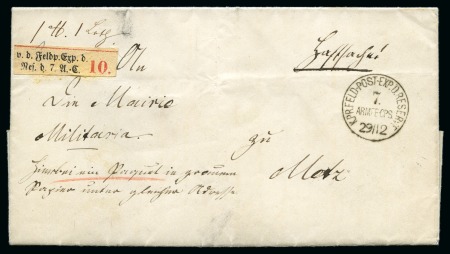 v. d. Feldp. Exp. d.
Res. d. 7. A.-C. 10.
An
Die Mairie
Militaria.
zu
Metz
Hierbei ein Paquet in grauem
Papier unter gleicher Adresse
K.PR.FELD-POST-EXP.D.RESERVE
7.
ARMEE CPS.
29/12